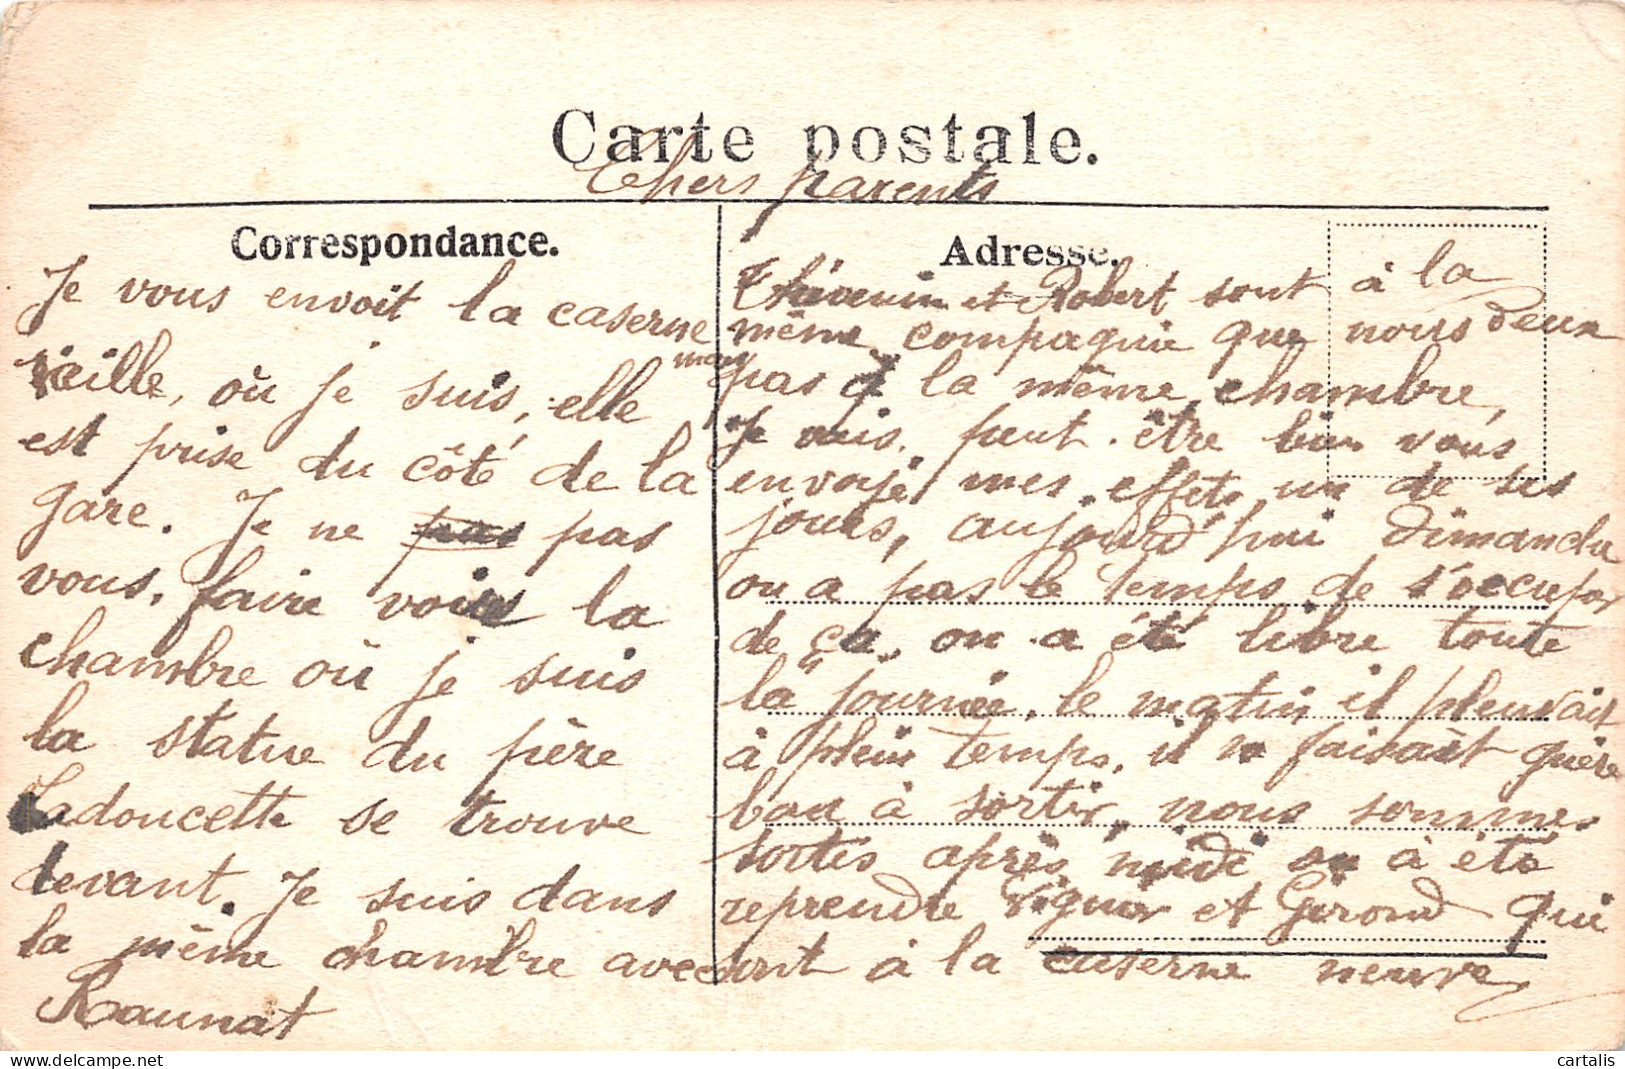 Carte postale.
Chers parents
Correspondance.
Je vous envoit la caserne
vieille, où je suis, elle
est prise du côté de la
gare. Je ne pas pas
vous, faire voir la
chambre où je suis
la statue du père
Ladoucette se trouve
devant. Je suis dans
la même chambre avec
Raunat
Adresse.
Thévenin et Robert sont à la
même compagnie que nous deux
mais pas à la même chambre,
Je vais, peut. être bien vous
envoyé mes effets un de ses
jours, aujourd'hui dimanche
on a pas le temps de s'occuper
de ça, on a été libre toute
la journée, le matin il pleuvait
à plein temps, il ne faisait guère
bon à sortir, nous sommes
sortis après midi on à été
reprendre Vignor et Girond qui
sont à la caserne neuve
cartalis